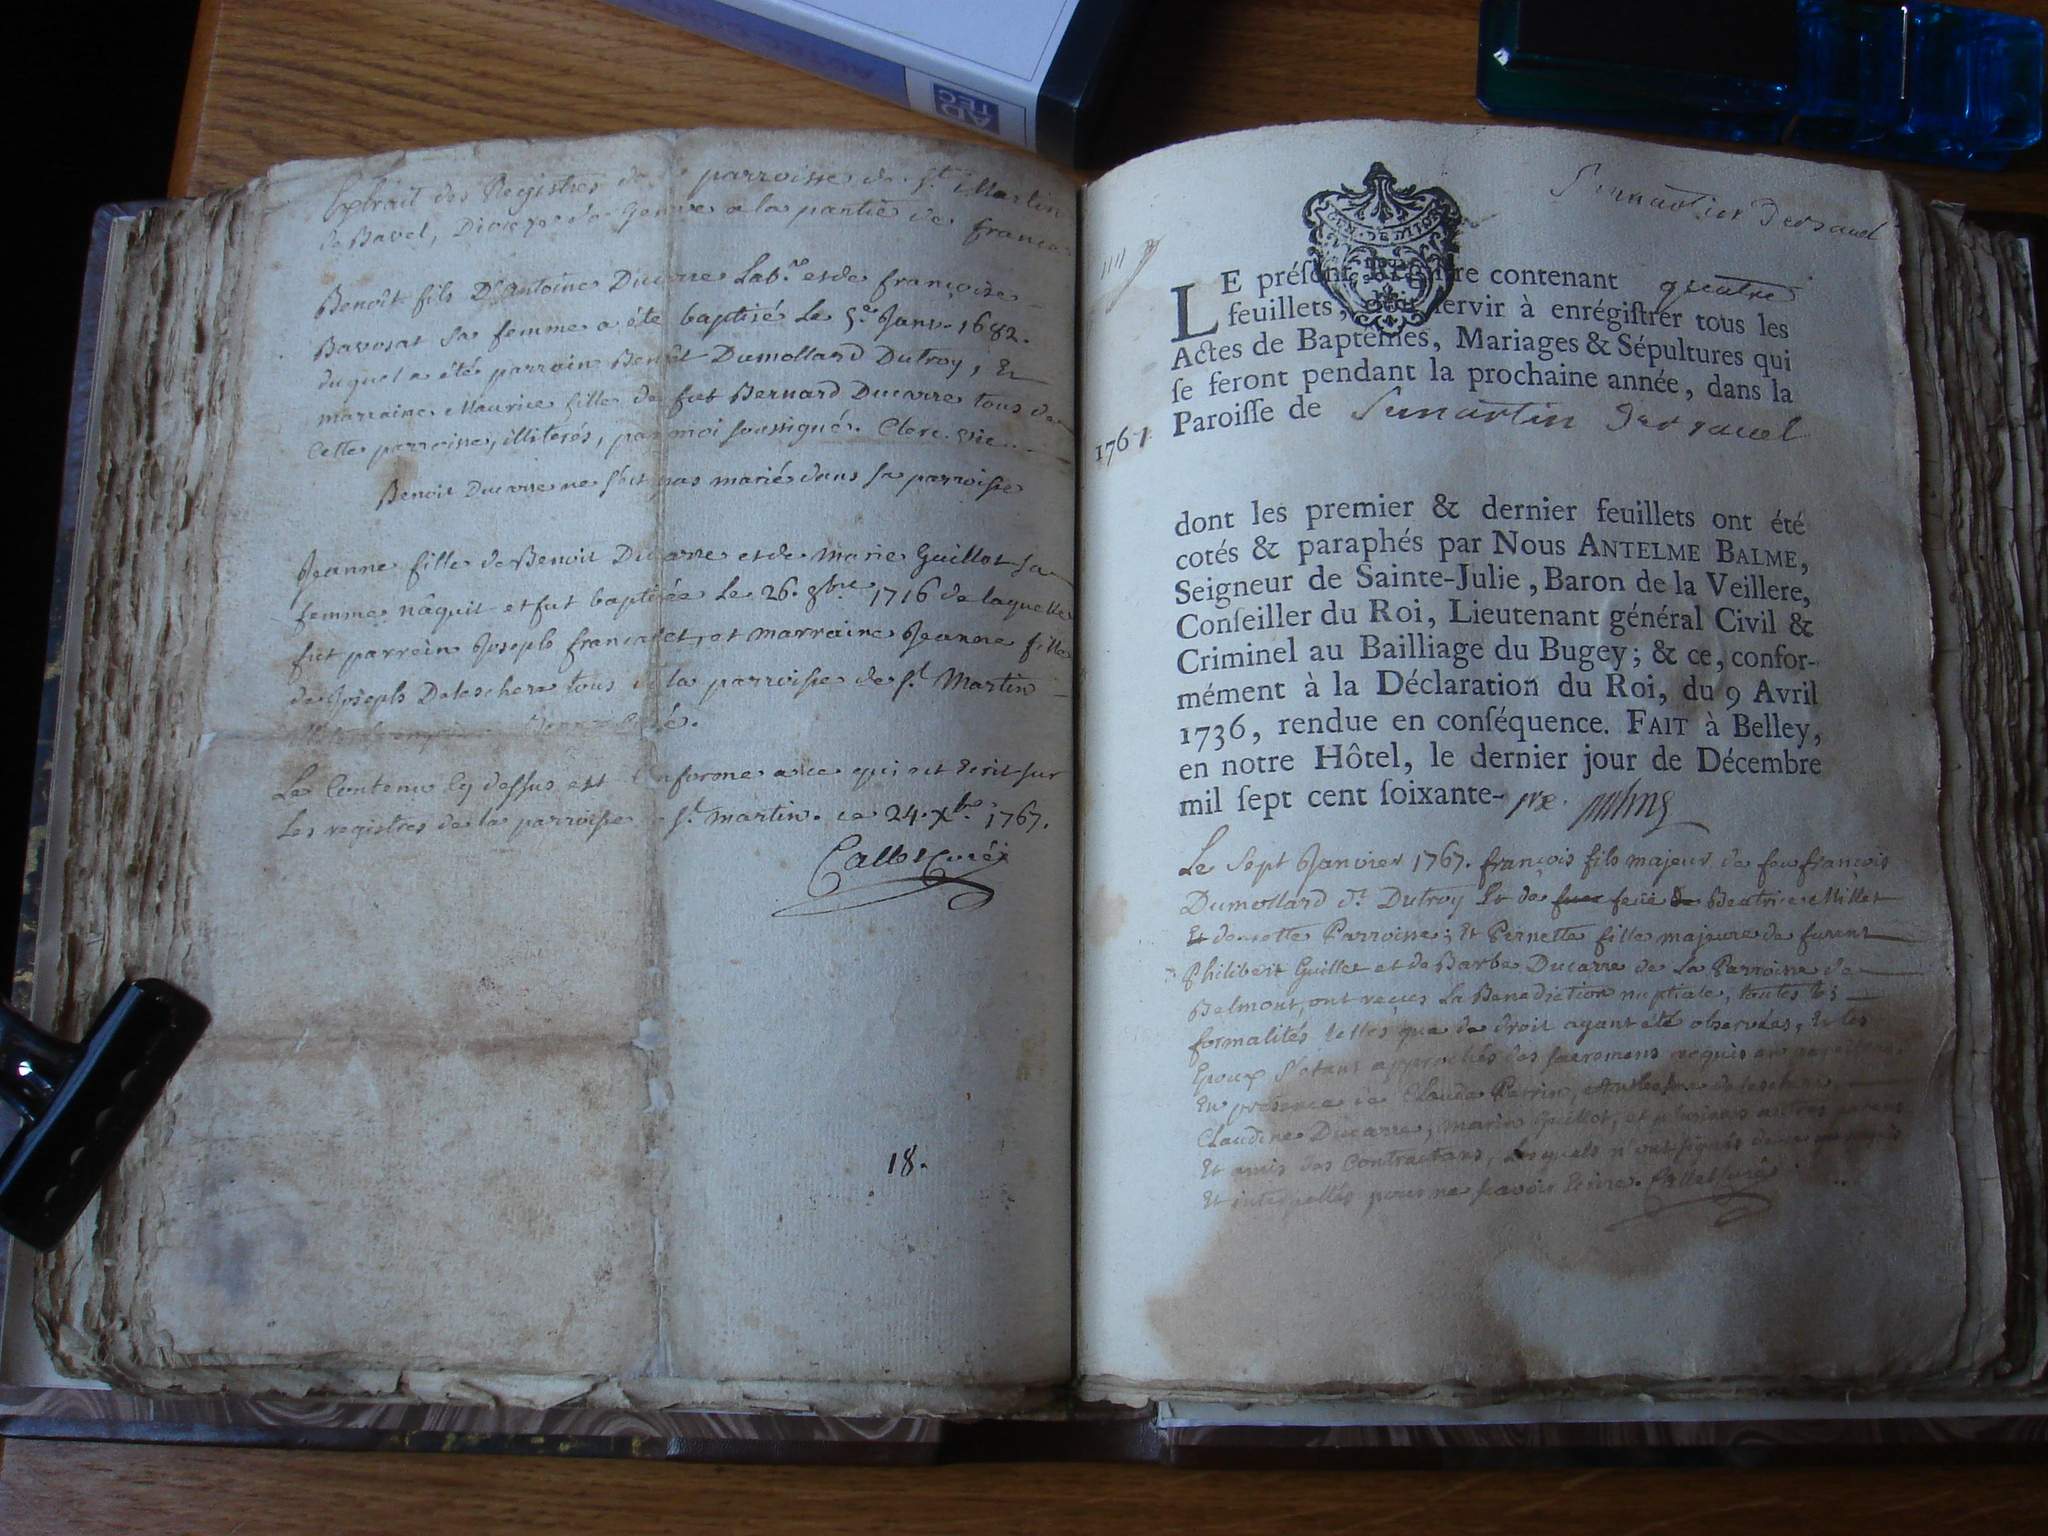 Extrait des Registres de parroisse de St. Martin
de Bavel, Diocese de Geneve a la partie de france
Benoît fils D'Antoine Ducarre Lab.r et de françoise
Bavosat sa femme a été baptisé Le 5.e Janv. 1682.
duquel a étés parrain Benoît Dumollard Dutroy, Et
marraine Maurice fille de feu Bernard Ducarre tous de
Cette parroisse, illiterés, par moi soussigné. Clerc. vic.
Benoit Ducarre ne s'est pas marié dans sa parroisse
Jeanne fille de Benoit Ducarre et de marie Guillot sa
femme nâquit et fut baptisée Le 26. 8bre 1716 de laquelle
fut parrein Joseph francalet, et marraine Jeanne fille
de Joseph Deleschere tous de la parroisse de St. Martin
Le Contenu Cy dessus est Conforme a ce qui est Ecrit sur
Les registres de la parroisse St. martin. ce 24. Xbre 1767.
Callet Curé
18.
St martin De Bavel
LE préſent Regiſtre contenant quatre
feuillets, doit ſervir à enrégiſtrer tous les
Actes de Baptêmes, Mariages & Sépultures qui
ſe feront pendant la prochaine année, dans la
Paroiſſe de St martin De Bavel
1767
dont les premier & dernier feuillets ont été
cotés & paraphés par Nous ANTELME BALME,
Seigneur de Sainte-Julie, Baron de la Veillere,
Conſeiller du Roi, Lieutenant général Civil &
Criminel au Bailliage du Bugey; & ce, confor-
mément à la Déclaration du Roi, du 9 Avril
1736, rendue en conſéquence. FAIT à Belley,
en notre Hôtel, le dernier jour de Décembre
mil ſept cent ſoixante-
Le Sept Janvier 1767. françois fils majeur de feu françois
Dumollard dt. Dutroy Et de feüe Beatrice Millet
Et de cette Parroisse; Et Pernette fille majeure de furent
Philibert Guillet et de Barbe Ducarre de La Parroisse de
Belmont, ont reçus La Benediction nuptiale, toutes les
formalités telles que de droit ayant été observées, Et les
Epoux s'étant approchés des sacremens requis
En presence de Claude Perrin, deleschere,
Claudine Ducarre, marin Guillot, et plusieurs autres parens
Et amis des Contractans, Lesquels n'ont signés de ce que requis
Et interpellés pour ne sçavoir Ecrire. Callet Curé
AD
TEC